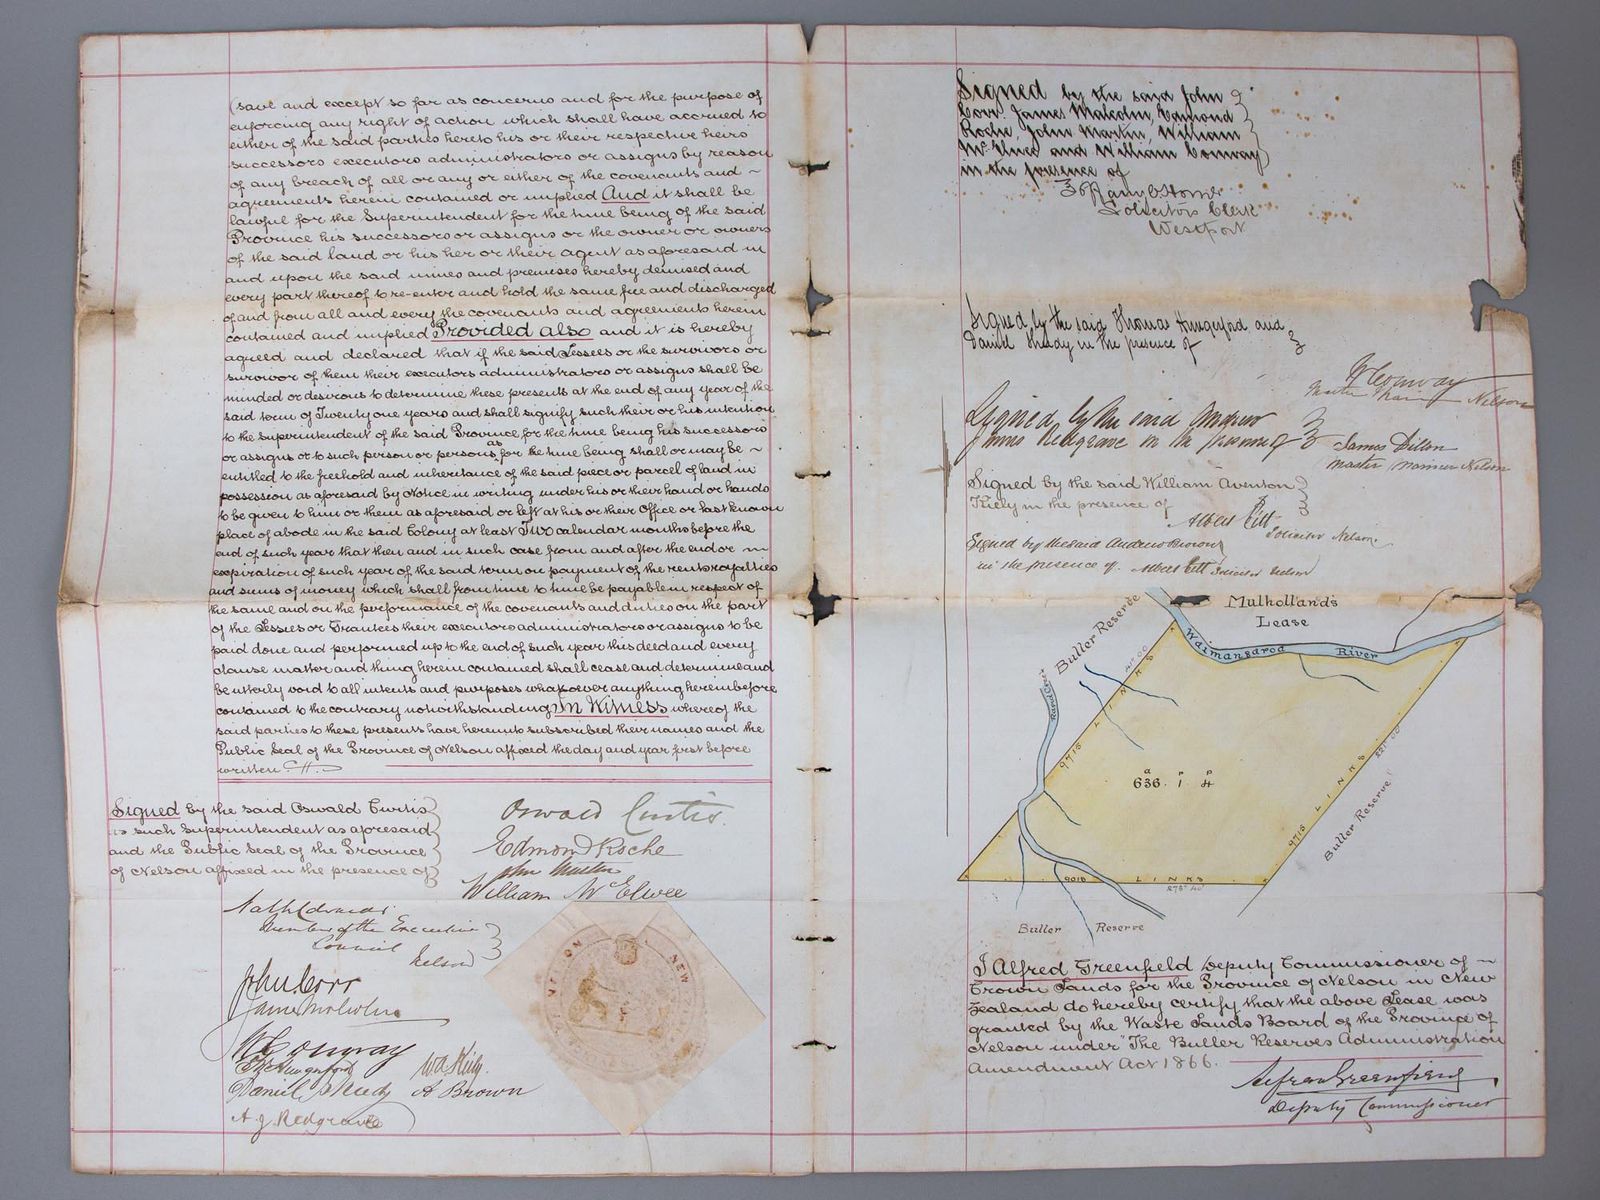 (save and except so far as concerns and for the purpose of
enforcing any right of action which shall have accrued to
either of the said parties hereto his or their respective heirs
successors executors administrators or assigns by reason
of any breach of all or any or either of the covenants and ~
agreements herein contained or implied And it shall be
lawful for the Superintendent for the time being of the said
Province his successors or assigns or the owner or owners
of the said land or his her or their agent as aforesaid in
and upon the said mines and premises hereby demised and
every part thereof to re-enter and hold the same free and discharged
of and from all and every the covenants and agreements herein
contained and implied Provided also and it is hereby
agreed and declared that if the said Lessees or the survivors or
survivor of them their executors administrators or assigns shall be
minded or desirous to determine these presents at the end of any year of the
said term of Twenty one years and shall signify such their or his intention
to the Superintendent of the said Province for the time being his successors
or assigns or to such person or persons as for the time being shall or may be ~
entitled to the freehold and inheritance of the said piece or parcel of land in
possession as aforesaid by Notice in writing under his or their hand or hands
to be given to him or them as aforesaid or left at his or their Office or last known
place of abode in the said Colony at least Two calendar months before the
end of such year that then and in such case from and after the end or
expiration of such year of the said term on payment of the rents royalties
and sums of money which shall from time to time be payable in respect of
the same and on the performance of the covenants and duties on the part
of the Lessees or Grantees their executors administrators or assigns to be
paid done and performed up to the end of such year this deed and every
clause matter and thing herein contained shall cease and determine and
be utterly void to all intents and purposes whatsoever anything hereinbefore
contained to the contrary notwithstanding In Witness whereof the
said parties to these presents have hereunto subscribed their names and the
Public Seal of the Province of Nelson affixed the day and year first before
written
Signed by the said Oswald Curtis
as such Superintendent as aforesaid
and the Public Seal of the Province
of Nelson affixed in the presence of
Oswald Curtis.
Edmond Roche
John Martin
William McElwee
Member of the Executive
Council
Nelson
John Corr
James Malcolm
W Conway
Hungerford
Wa Kiely.
Daniel Sheedy
A Brown
A. J. Redgrave
NEW
Signed by the said John
Corr James Malcolm, Edmond
Roche, John Martin, William
McElwee and William Conway
in the presence of
Solicitors Clerk
Westport
Signed by the said Thomas Hungerford and
Daniel Sheedy in the presence of
W Conway
Nelson
Signed by the said Andrew
James Redgrave in the presence of
James Dilon
Master Mariner Nelson
Signed by the said William Aventon
Kiely in the presence of
Albert Pitt
Solicitor Nelson.
Signed by the said Andrew Brown
in the presence of Albert Pitt Solicitor Nelson
Mulholland's
Lease
Buller Reserve
Waimangaroa River
9715 LINKS
636. 1. 4
a r p
9715 LINKS
Buller Reserve
9015 LINKS
Buller Reserve
I Alfred Greenfield Deputy Commissioner of ~
Crown Lands for the Province of Nelson in New
Zealand do hereby certify that the above Lease was
granted by the Waste Lands Board of the Province of
Nelson under "The Buller Reserves Administration
Amendment Act 1866.
Alfred Greenfield
Deputy Commissioner